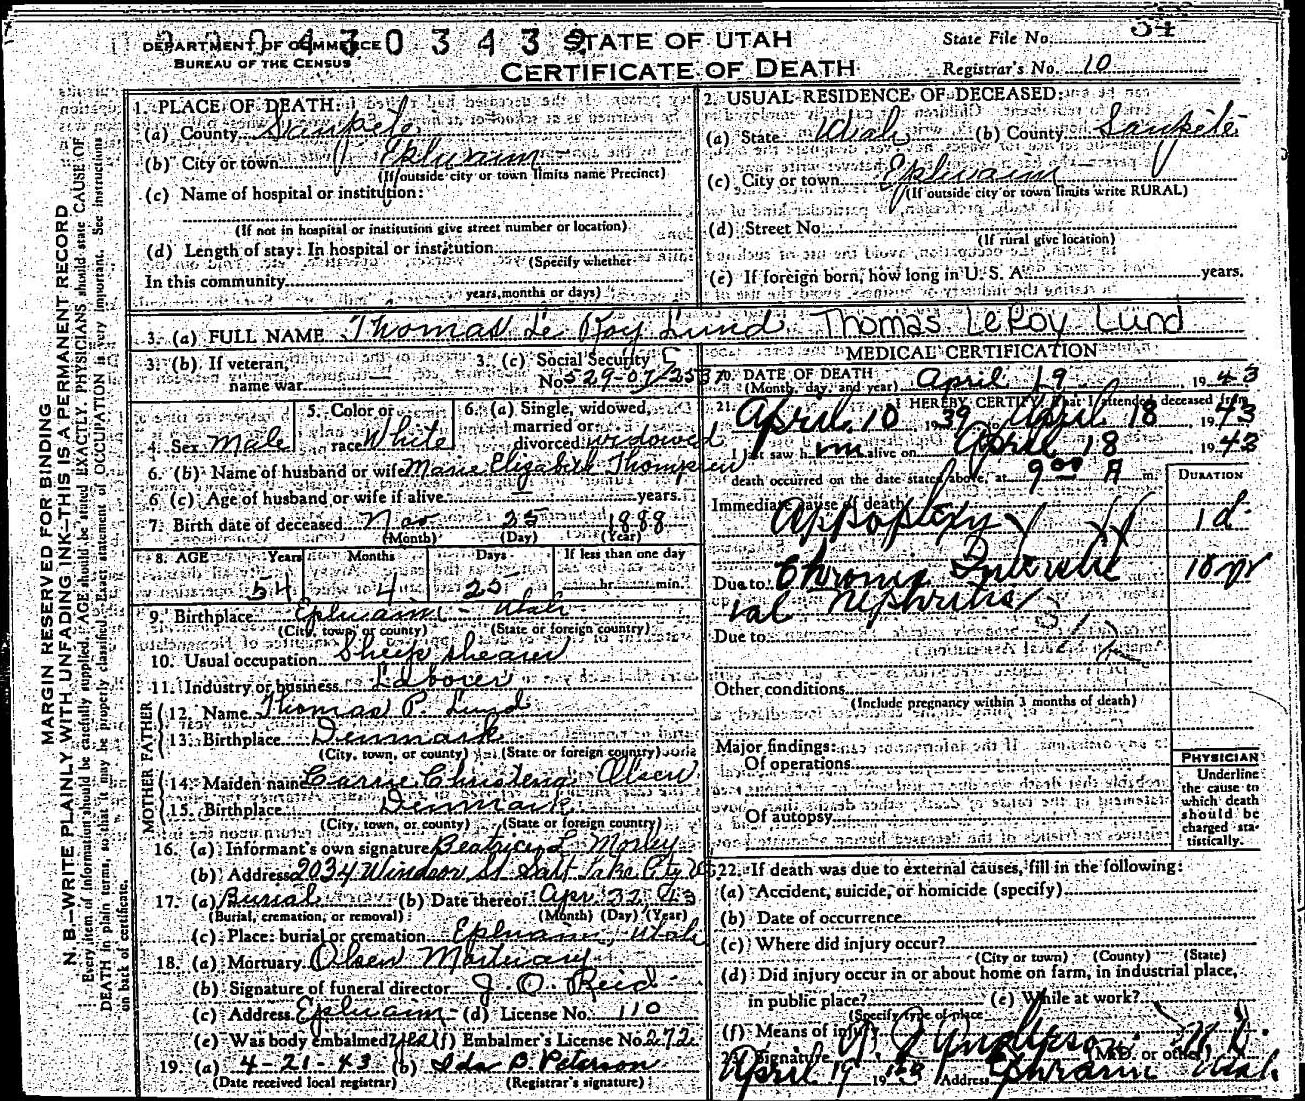 DEPARTMENT OF COMMERCE
BUREAU OF THE CENSUS
STATE OF UTAH
CERTIFICATE OF DEATH
State File No. 54
Registrar's No. 10
MARGIN RESERVED FOR BINDING
N. B.—WRITE PLAINLY WITH UNFADING INK—THIS IS A PERMANENT RECORD
Every item of information should be carefully supplied. AGE should be stated EXACTLY. PHYSICIANS should state CAUSE OF
DEATH in plain terms, so that it may be properly classified. Exact statement of OCCUPATION is very important. See instructions
on back of certificate.
1. PLACE OF DEATH:
(a) County Sanpete
(b) City or town Ephraim
(If outside city or town limits name Precinct)
(c) Name of hospital or institution:
(If not in hospital or institution give street number or location)
(d) Length of stay: In hospital or institution
(Specify whether
In this community
years, months or days)
2. USUAL RESIDENCE OF DECEASED:
(a) State Utah (b) County Sanpete
(c) City or town Ephraim
(If outside city or town limits write RURAL)
(d) Street No.
(If rural give location)
(e) If foreign born, how long in U. S. A. years.
3. (a) FULL NAME Thomas Le Roy Lund Thomas LeRoy Lund
3. (b) If veteran, name war —
3. (c) Social Security No. 529-07-2537
4. Sex Male
5. Color or race White
6. (a) Single, widowed, married or divorced widowed
6. (b) Name of husband or wife Marie Elizabeth Thompson
6 (c) Age of husband or wife if alive — years.
7. Birth date of deceased Nov 25 1888
(Month) (Day) (Year)
8. AGE Years Months Days If less than one day
54 4 25 hr. min.
9. Birthplace Ephraim - Utah
(City, town, or county) (State or foreign country)
10. Usual occupation Sheep shearer
11. Industry or business Laborer
FATHER
12. Name Thomas P. Lund
13. Birthplace Denmark
(City, town, or county) (State or foreign country)
MOTHER
14. Maiden name Carrie Christena Olsen
15. Birthplace Denmark
(City, town, or county) (State or foreign country)
16. (a) Informant's own signature Beatrice L Morley
(b) Address 2034 Windsor St Salt Lake City
17. (a) Burial (b) Date thereof Apr. 22, 43
(Burial, cremation, or removal) (Month) (Day) (Year)
(c) Place: burial or cremation Ephraim, Utah
18. (a) Mortuary Olsen Mortuary
(b) Signature of funeral director J. O. Reid
(c) Address Ephraim (d) License No. 110
(e) Was body embalmed? yes (f) Embalmer's License No. 272
19. (a) 4-21-43 (b) Ida B. Peterson
(Date received local registrar) (Registrar's signature)
MEDICAL CERTIFICATION
20. DATE OF DEATH
(Month, day, and year) April 19, 1943
21. I HEREBY CERTIFY, That I attended deceased from
April 10 1939 April 18, 1943
I last saw him alive on April 18 1943
death occurred on the date stated above, at 9 00 A m.
DURATION
Immediate cause of death
Appoplexy 1 d.
Due to Chronic Interstitial Nephritis 10 yr
Due to
Other conditions
(Include pregnancy within 3 months of death)
Major findings:
Of operations
Of autopsy
PHYSICIAN
Underline
the cause to
which death
should be
charged sta-
tistically.
22. If death was due to external causes, fill in the following:
(a) Accident, suicide, or homicide (specify)
(b) Date of occurrence
(c) Where did injury occur?
(City or town) (County) (State)
(d) Did injury occur in or about home on farm, in industrial place,
in public place? (e) While at work?
(Specify type of place
(f) Means of injury
23. Signature M.D.
(M.D. or other)
April 19 1943 Address Ephraim Utah